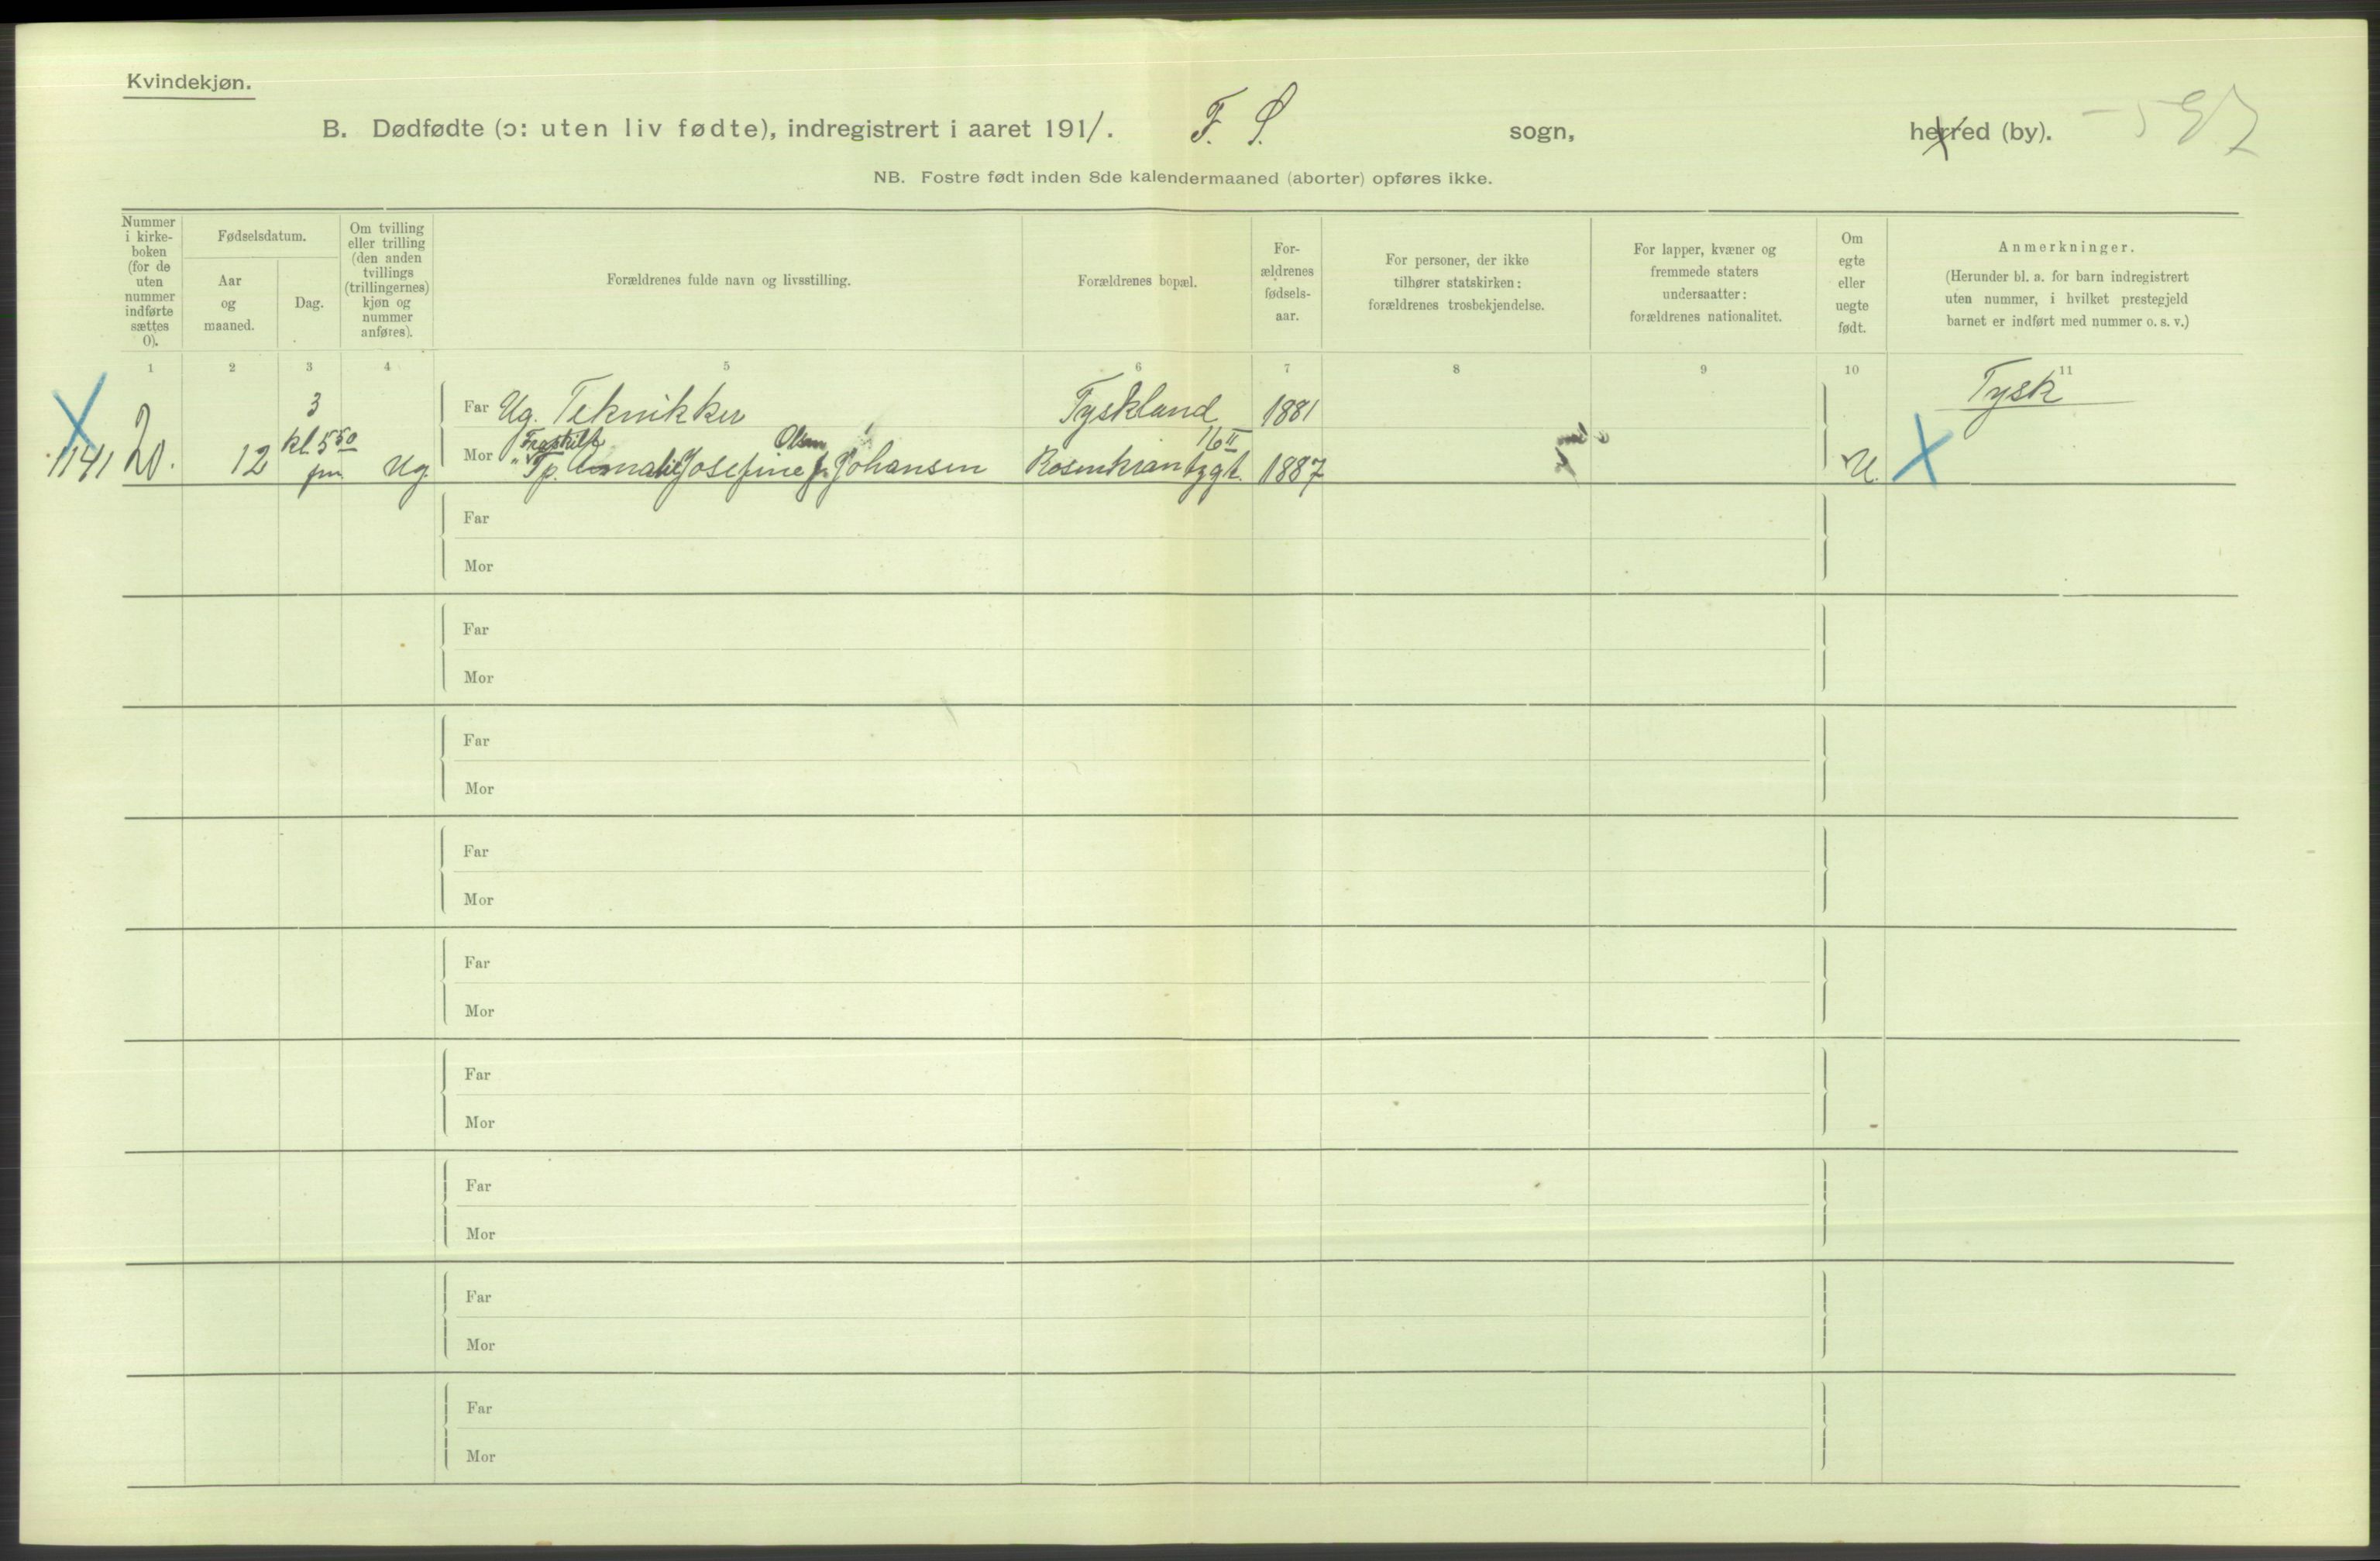 Kvindekjøn.
B. Dødfødte (ɔ: uten liv fødte), indregistrert i aaret 1911. F. S. sogn, herred (by). - 597
NB. Fostre født inden 8de kalendermaaned (aborter) opføres ikke.
Nummer i kirke-boken (for de uten nummer indførte sættes 0).
Fødselsdatum.
Aar og maaned.
Dag.
Om tvilling eller trilling (den anden tvillings (trillingernes) kjøn og nummer anføres).
Forældrenes fulde navn og livsstilling.
Forældrenes bopæl.
For-ældrenes fødsels-aar.
For personer, der ikke tilhører statskirken: forældrenes trosbekjendelse.
For lapper, kvæner og fremmede staters undersaatter: forældrenes nationalitet.
Om egte eller uegte født.
Anmerkninger.
(Herunder bl. a. for barn indregistrert uten nummer, i hvilket prestegjeld barnet er indført med nummer o. s. v.)
1 2 3 4 5 6 7 8 9 10 11
3 Far Ug. Teknikker Tyskland 1881 Tysk
kl 5 50 Fraskilt Olsen 16 II
1141 20. 12 fm Ug. Mor " Tp. Amalie Josefine f. Johansen Rosenkrantzgt. 1887 U.
Far
Mor
Far
Mor
Far
Mor
Far
Mor
Far
Mor
Far
Mor
Far
Mor
Far
Mor
Far
Mor